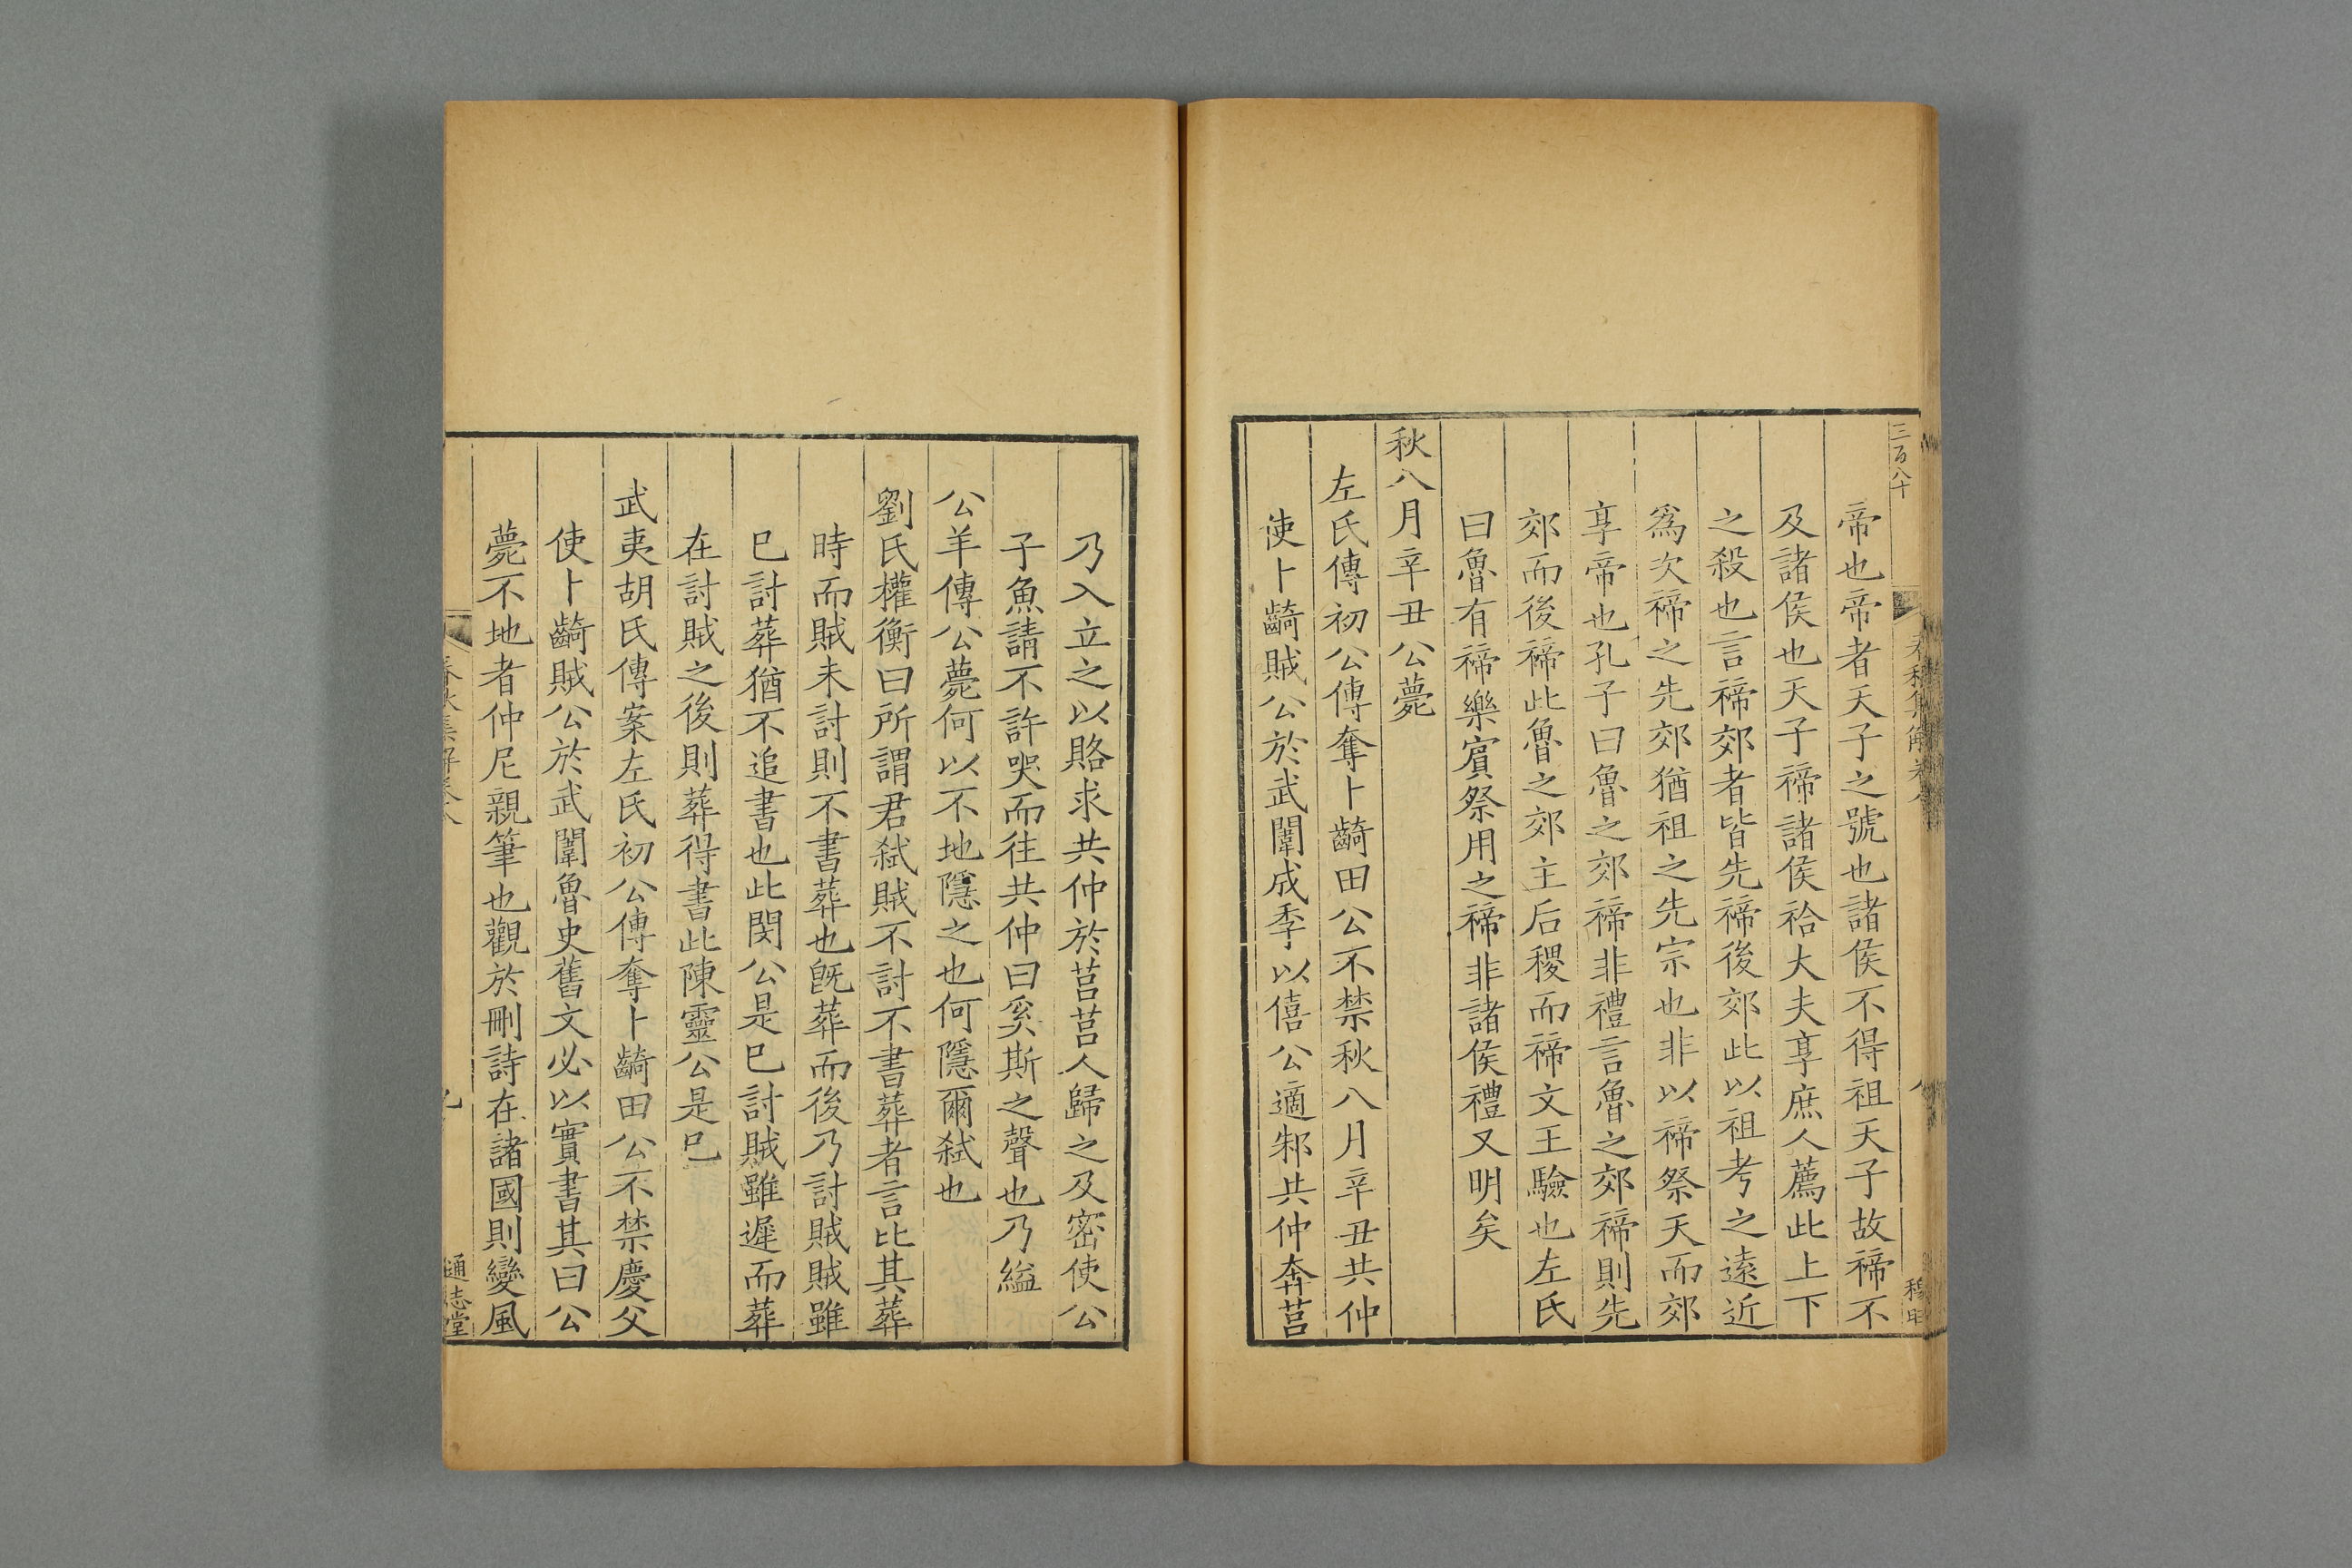 三百八十
帝也帝者天子之號也諸侯不得祖天子故禘不
及諸侯也天子禘諸侯祫大夫享庶人薦此上下
之殺也言禘郊者皆先禘後郊此以祖考之遠近
爲次禘之先郊猶祖之先宗也非以禘祭天而郊
享帝也孔子曰魯之郊禘非禮言魯之郊禘則先
郊而後禘此魯之郊主后稷而禘文王驗也左氏
曰魯有禘樂賔祭用之禘非諸侯禮又明矣
秋八月辛丑公薨
左氏傳初公傳奪卜齮田公不禁秋八月辛丑共仲
使卜齮賊公於武闈成季以僖公適邾共仲奔莒
乃入立之以賂求共仲於莒莒人歸之及密使公
子魚請不許哭而往共仲曰奚斯之聲也乃縊
公羊傳公薨何以不地隱之也何隱爾弑也
劉氏權衡曰所謂君弑賊不討不書葬者言比其葬
時而賊未討則不書葬也旣葬而後乃討賊賊雖
已討葬猶不追書也此閔公是已討賊雖遲而葬
在討賊之後則葬得書此陳靈公是已
武夷胡氏傳案左氏初公傳奪卜齮田公不禁慶父
使卜齮賊公於武闈魯史舊文必以實書其曰公
薨不地者仲尼親筆也觀於刪詩在諸國則變風
春秋集解卷八
九
通志堂